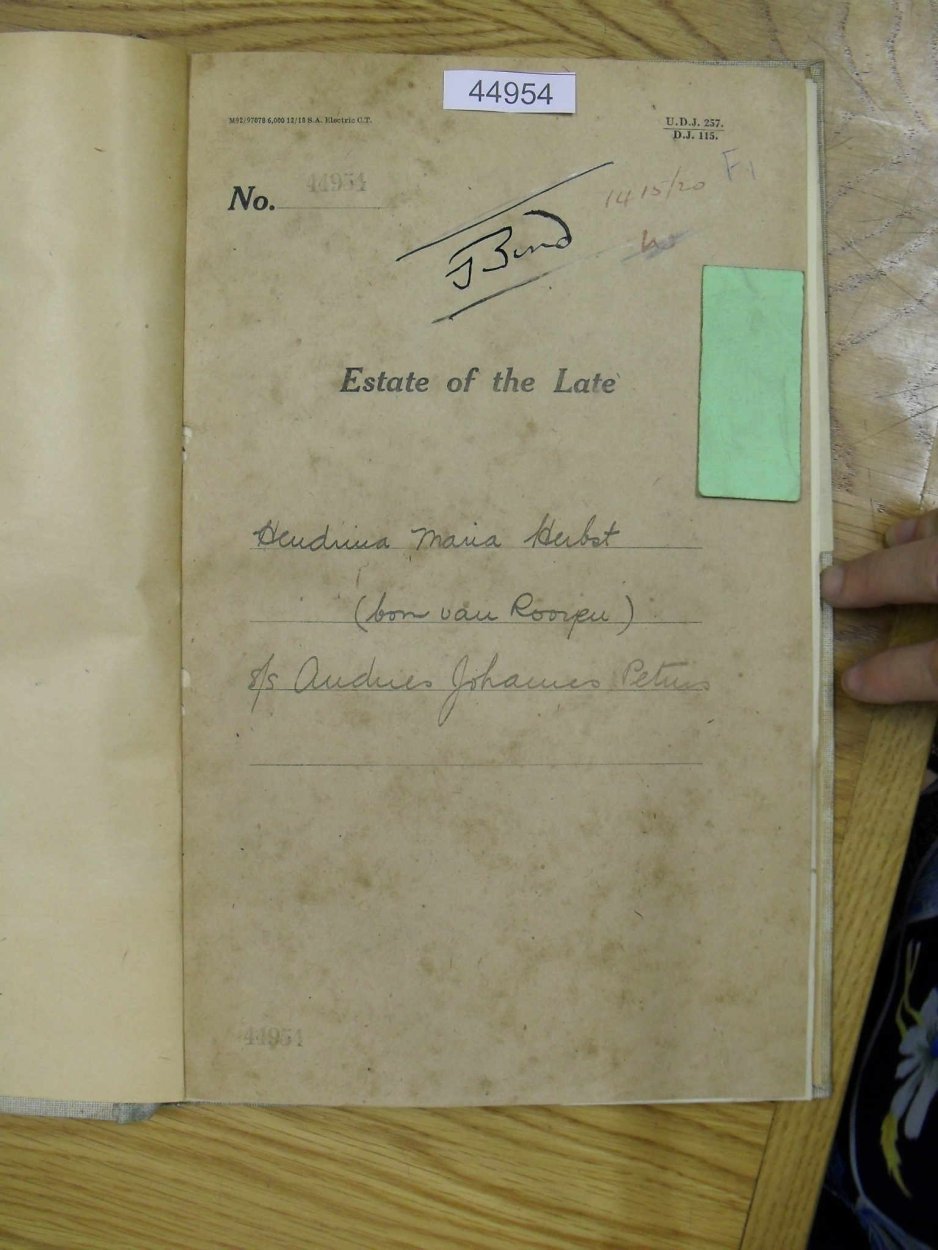 44954
M92/97078 6,000 12/18 S.A. Electric C.T.
U.D.J. 257.
D.J. 115.
No. 44954
14/5/20
F1
Estate of the Late
Hendrina Maria Herbst
(born van Rooyen)
s/s Andries Johannes Petrus
44954